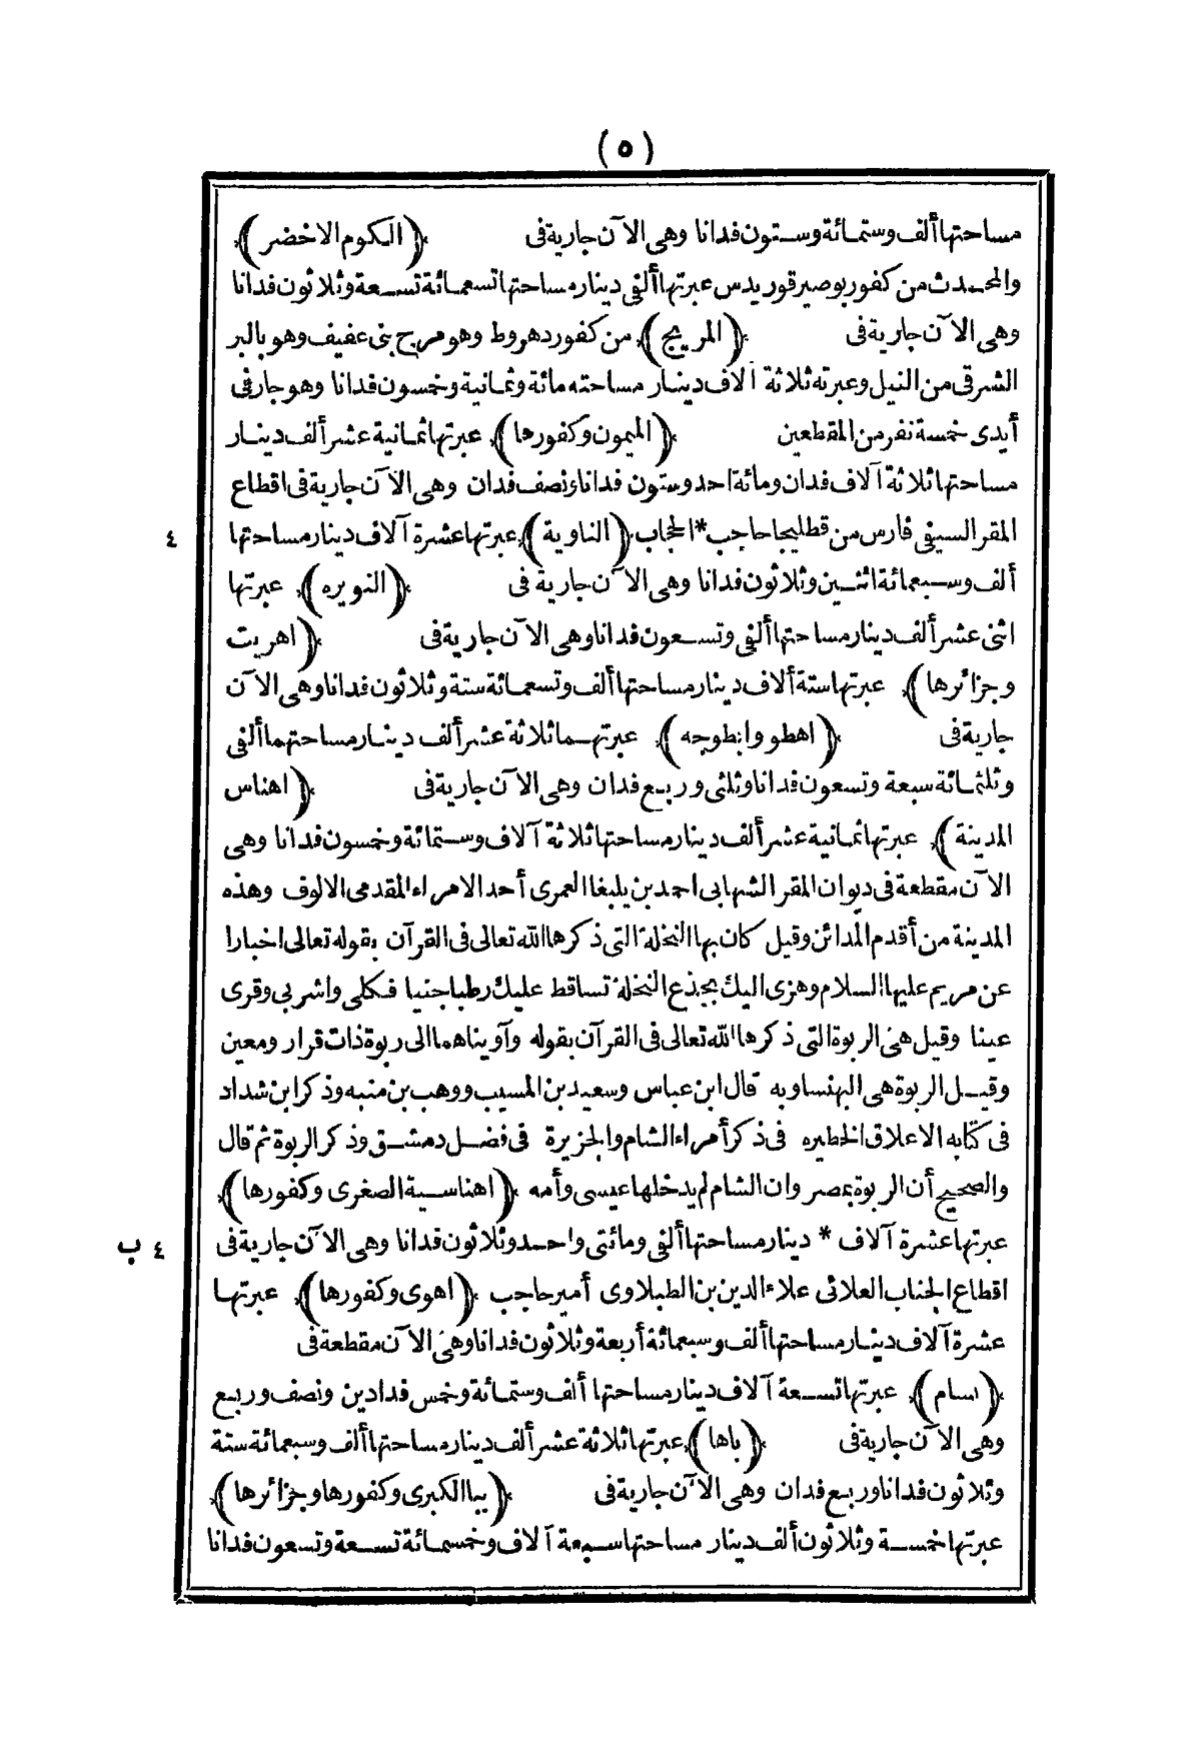 (٥)
مساحتها ألف وستمائة وستون فدانا وهى الآن جارية فى ﴿الكوم الاخضر﴾
والمحدث من كفور بوصير قوريدس عبرتها ألفى دينار مساحتها تسعمائة تسعة وثلاثون فدانا
وهى الآن جارية فى ﴿المريج﴾ من كفور دهروط وهو مرج بنى عفيف وهو بالبر
الشرقى من النيل وعبرته ثلاثة آلاف دينار مساحته مائة وثمانية وخمسون فدانا وهو جار فى
أيدى خمسة نفر من المقطعين ﴿الميمون وكفورها﴾ عبرتها ثمانية عشر ألف دينار
مساحتها ثلاثة آلاف فدان ومائة احد وستون فدانا ونصف فدان وهى الآن جارية فى اقطاع
المقر السيفى فارس من قطليجا حاجب * الحجاب ﴿الناوية﴾ عبرتها عشرة آلاف دينار مساحتها
٤
ألف وسبعمائة اثنين وثلاثون فدانا وهى الآن جارية فى ﴿النويره﴾ عبرتها
اثنى عشر ألف دينار مساحتها ألفى وتسعون فدانا وهى الآن جارية فى ﴿اهريت
وجزائرها﴾ عبرتها ستة ألاف دينار مساحتها ألف وتسعمائة ستة وثلاثون فدانا وهى الآن
جارية فى ﴿اهطو وابطوجه﴾ عبرتهما ثلاثة عشر ألف دينار مساحتهما ألفى
وثلثمائة سبعة وتسعون فدانا وثلثى وربع فدان وهى الآن جارية فى ﴿اهناس
المدينة﴾ عبرتها ثمانية عشر ألف دينار مساحتها ثلاثة آلاف وستمائة وخمسون فدانا وهى
الآن مقطعة فى ديوان المقر الشهابى احمد بن يلبغا العمرى أحد الامراء المقدمى الالوف وهذه
المدينة من أقدم المدائن وقيل كان بها النخلة التى ذكرها الله تعالى فى القرآن بقوله تعالى اخبارا
عن مريم عليها السلام وهزى اليك بجذع النخلة تساقط عليك رطبا جنيا فكلى واشربى وقرى
عينا وقيل هى الربوة التى ذكرها الله تعالى فى القرآن بقوله وآويناهما الى ربوة ذات قرار ومعين
وقيل الربوة هى البهنسا وبه قال ابن عباس وسعيد بن المسيب ووهب بن منبه وذكر ابن شداد
فى كتابه الاعلاق الخطيره فى ذكر أمراء الشام والجزيرة فى فضل دمشق وذكر الربوة ثم قال
والصحيح أن الربوة بمصر وان الشام لم يدخلها عيسى وأمه ﴿اهناسية الصغرى وكفورها﴾
عبرتها عشرة آلاف * دينار مساحتها ألفى ومائتى واحد وثلاثون فدانا وهى الآن جارية فى
٤ ب
اقطاع الجناب العلائى علاء الدين بن الطبلاوى أمير حاجب ﴿اهوى وكفورها﴾ عبرتها
عشرة آلاف دينار مساحتها ألف وسبعمائة أربعة وثلاثون فدانا وهى الآن مقطعة فى
﴿بسام﴾ عبرتها تسعة آلاف دينار مساحتها ألف وستمائة وخمس فدادين ونصف وربع
وهى الآن جارية فى ﴿باها﴾ عبرتها ثلاثة عشر ألف دينار مساحتها ألف وسبعمائة ستة
وثلاثون فدانا وربع فدان وهى الآن جارية فى ﴿ببا الكبرى وكفورها وجزائرها﴾
عبرتها خمسة وثلاثون ألف دينار مساحتها سبعة آلاف وخمسمائة تسعة وتسعون فدانا